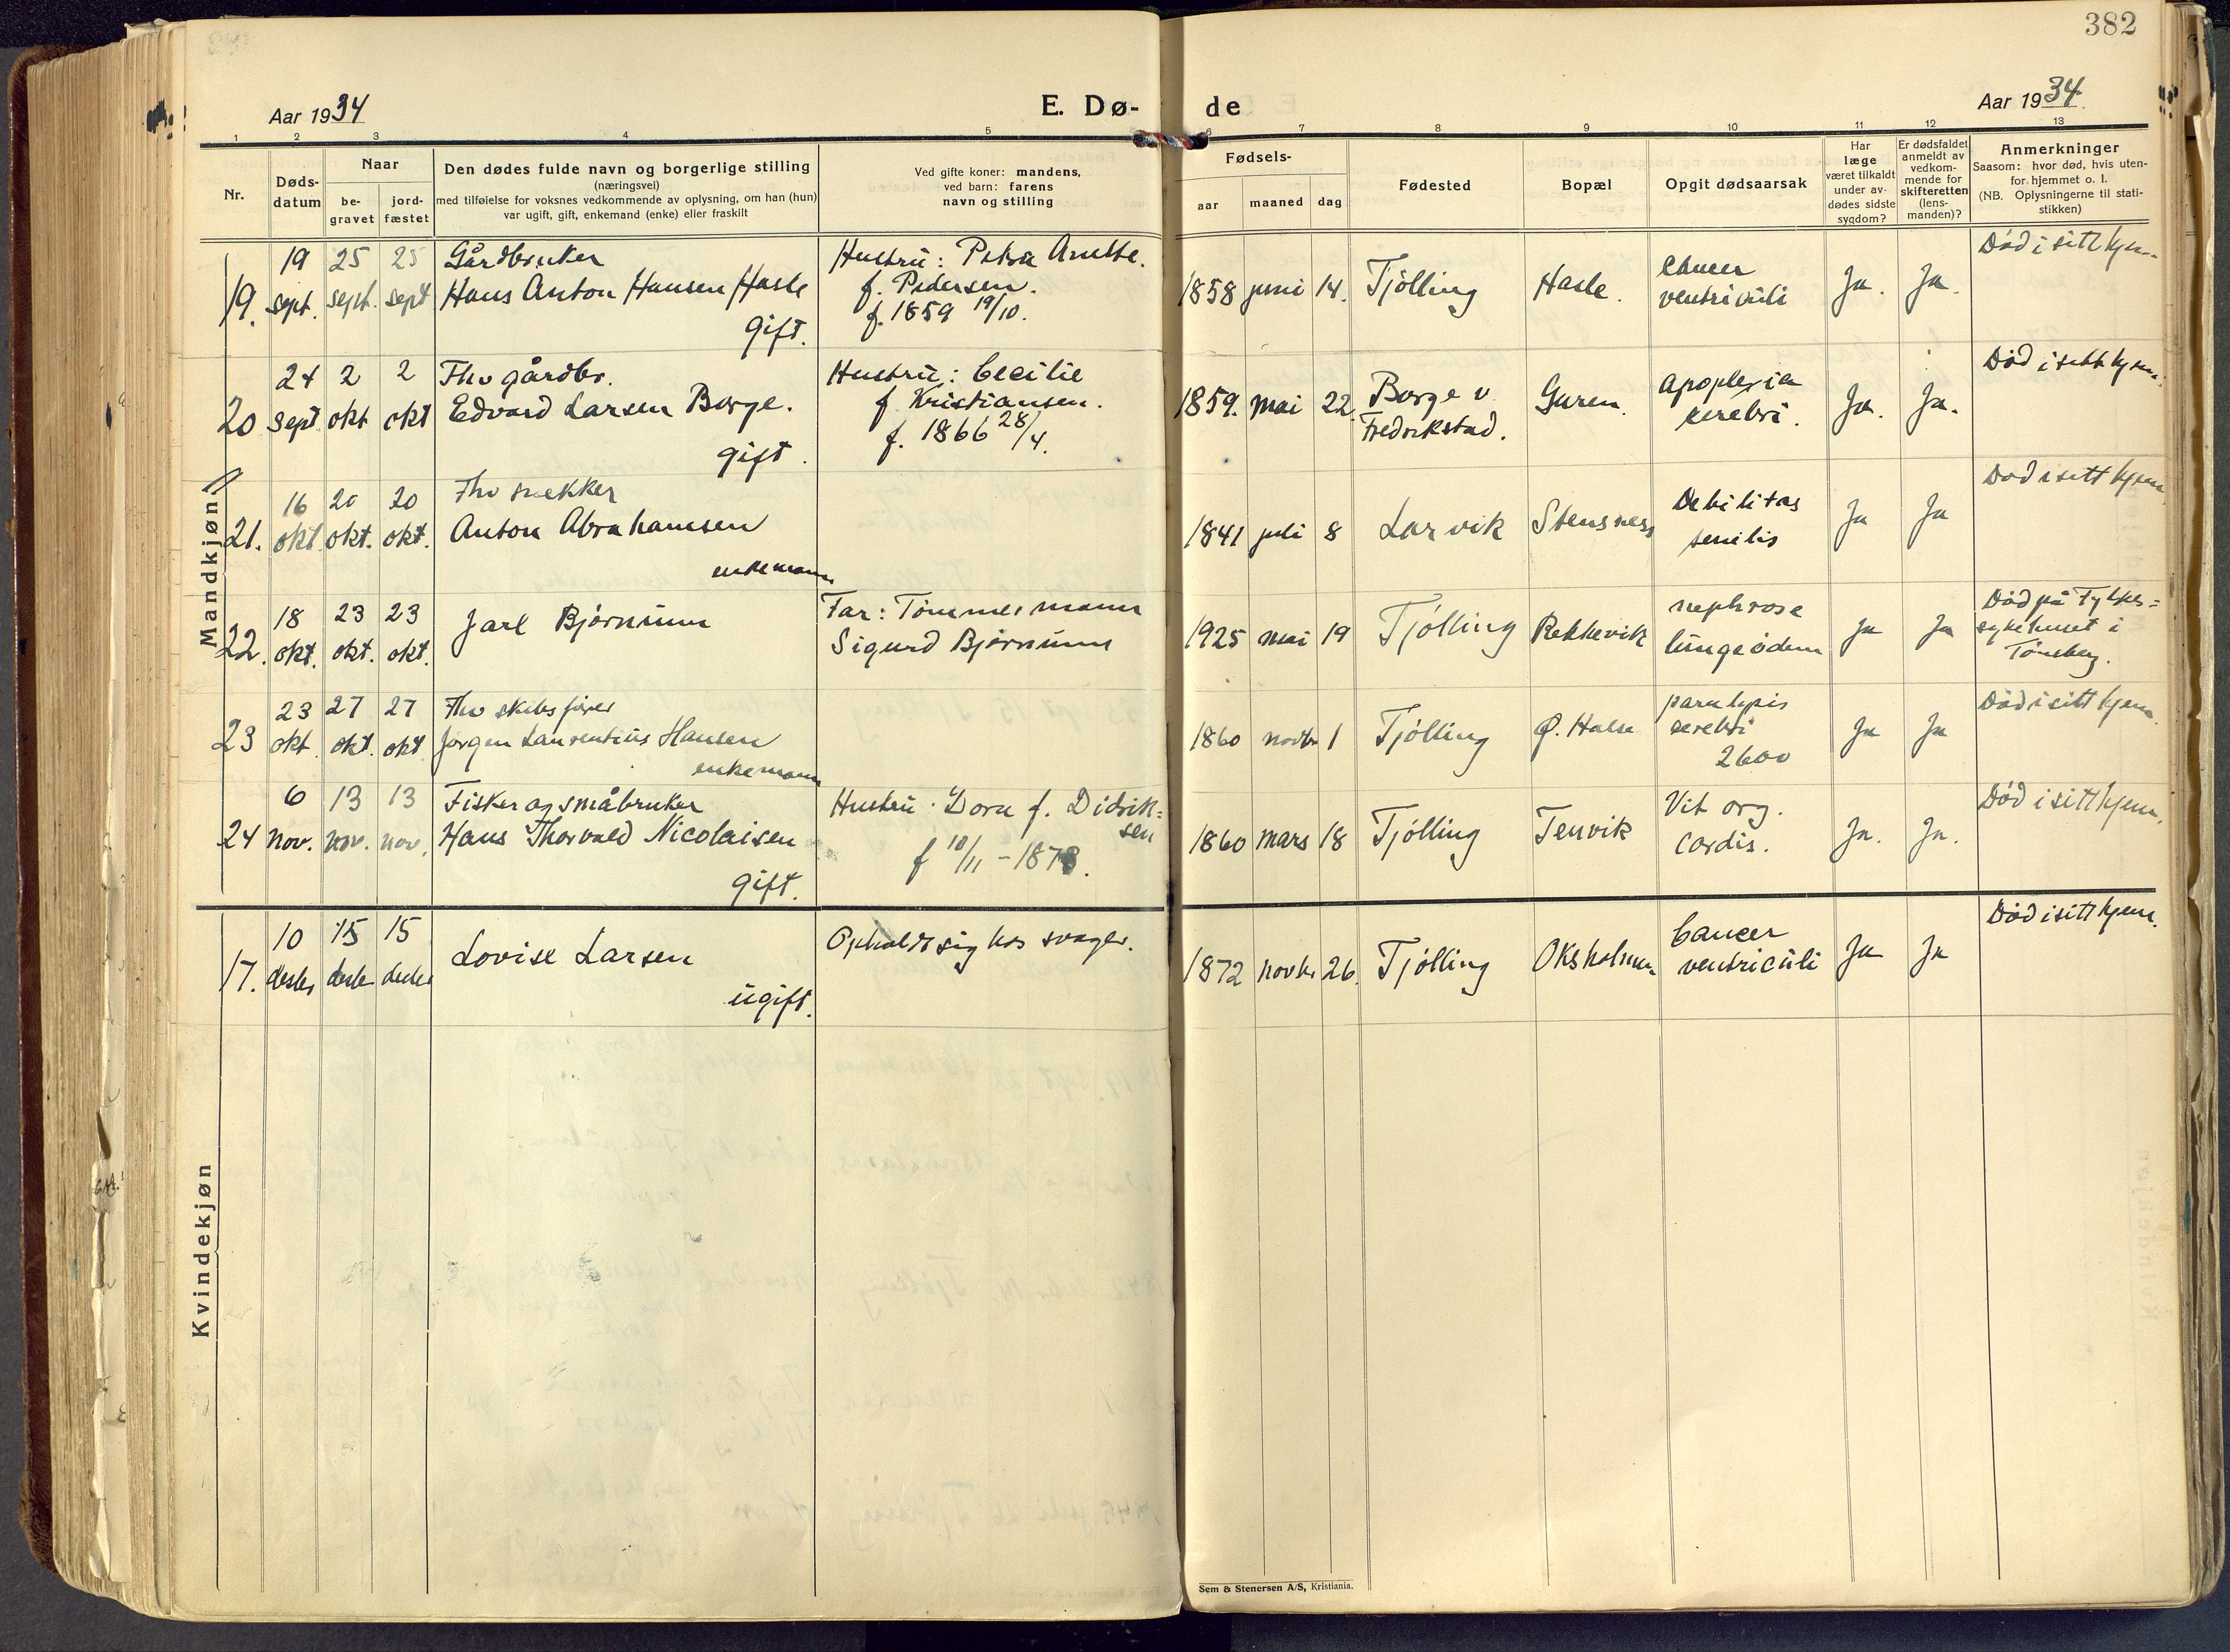 382
Aar 1934
E. Dø-
de
Aar 1934
1 2 3 4 5 6 7 8 9 10 11 12 13
Nr.
Døds-
datum
Naar
be-
gravet
jord-
fæstet
Den dødes fulde navn og borgerlige stilling
(næringsvei)
med tilføielse for voksnes vedkommende av oplysning, om han (hun)
var ugift, gift, enkemand (enke) eller fraskilt
Ved gifte koner: mandens,
ved barn: farens
navn og stilling
Fødsels-
aar
maaned
dag
Fødested
Bopæl
Opgit dødsaarsak
Har
læge
været tilkaldt
under av-
dødes sidste
sygdom?
Er dødsfaldet
anmeldt av
vedkom-
mende for
skifteretten
(lens-
manden)?
Anmerkninger
Saasom: hvor død, hvis uten-
for hjemmet o. l.
(NB. Oplysningerne til stati-
stikken)
Mandkjøn
19.
19
sept.
25
sept.
25
sept
Gårdbruker
Hans Anton Hansen Hasle
gift.
Hustru: Petra Anette.
f. Pedersen.
f. 1859 19/10.
1858 juni 14.
Tjølling
Hasle.
Cancer
ventriculi
Ja.
Ja.
Død i sitt hjem
20
24
sept
2
okt
2
okt
Fhv gårdbr.
Edvard Larsen Borge.
gift.
Hustru: Cecilie
f. Kristiansen.
f. 1866 28/4.
1859. mai 22.
Borge v
Fredrikstad.
Guren.
Apoplexia
cerebri.
Ja.
Ja.
Død i sitt hjem.
21.
16
okt
20
okt.
20
okt.
Fhv snekker
Anton Abrahamsen
enkemann
1841 juli 8
Larvik
Stensnes
Debilitas
senilis
Ja
Ja
Død i sitt hjem
22.
18
okt.
23
okt.
23
okt.
Jarl Bjørnum
Far: Tømmermann
Sigurd Bjørnum
1925 mai 19
Tjølling
Rekkevik
nephrose
lungeødem
Ja
Ja
Død på Fylkes=
sykehuset i
Tønsberg.
23
23
okt.
27
okt.
27
okt
Fhv skibsfører
Jørgen Laurentius Hansen
enkemann
1860 novbr 1
Tjølling
Ø. Halse
paralysis
cerebri
2600
Ja
Ja
Død i sitt hjem.
24
6
nov.
13
nov.
13
nov.
Fisker og småbruker
Hans Thorvald Nicolaisen
gift.
Hustru: Dora f. Didrik=
sen
f 10/11 - 1873.
1860 mars 18
Tjølling
Tenvik
Vit org.
cordis.
Ja.
Ja.
Død i sitt hjem.
Kvindekjøn
17.
10
desbr
15
desbr
15
desbr
Lovise Larsen
ugift.
Opholdt sig hos svoger.
1872 novbr 26.
Tjølling
Oksholmen
Cancer
ventriculi
Ja
Ja
Død i sitt hjem.
Sem & Stenersen A/S, Kristiania.